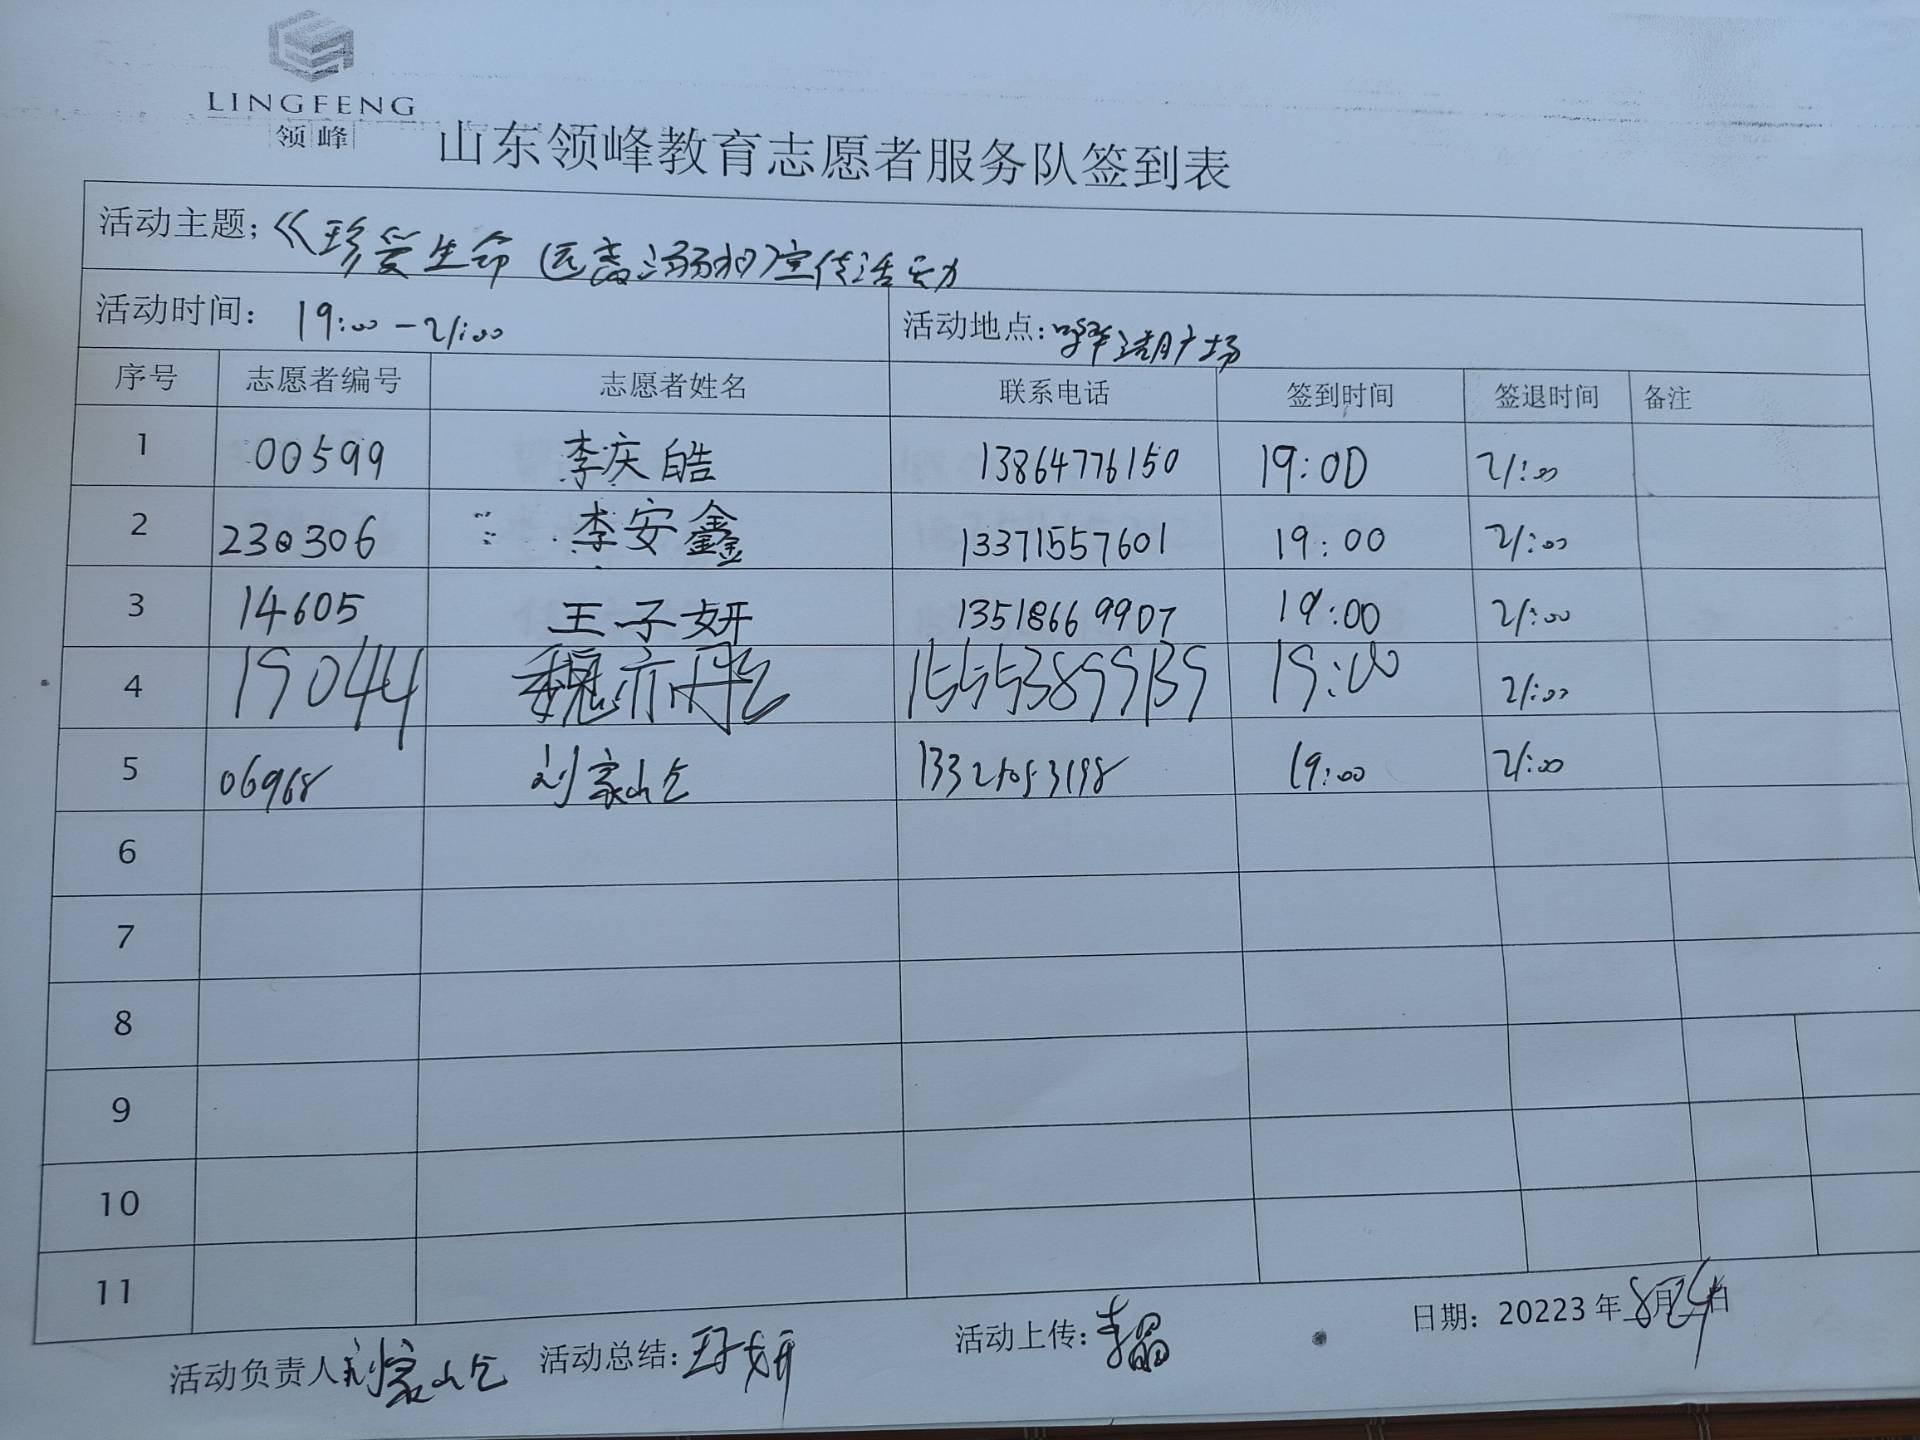 LINGFENG
领峰
山东领峰教育志愿者服务队签到表
活动主题；《珍爱生命 远离溺水》宣传活动
活动时间： 19:00-21:00 活动地点: 广场
序号 志愿者编号 志愿者姓名 联系电话 签到时间 签退时间 备注
1 00599 李庆皓 13864776150 19:00 21:00
2 230306 李安鑫 13371557601 19:00 21:00
3 14605 王子妍 13518669907 19:00 21:00
4 19044 魏亦彤 15553899139 19:00 21:00
5 06968 刘家山 19:00 21:00
6
7
8
9
10
11
活动负责人 刘家山 活动总结: 王子妍 活动上传: 李晶 日期: 20223 年 8月 日